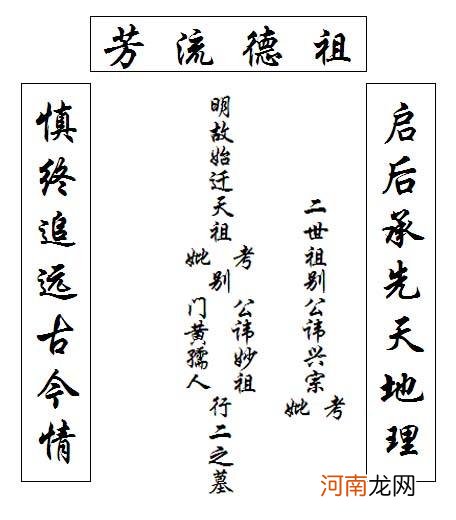 祖德流芳
启后承先天地理
二世祖别公讳兴宗
考
妣
明故始迁天祖
考
妣
别
公讳妙祖
门黄孺人
行二之墓
慎终追远古今情
河南龙网